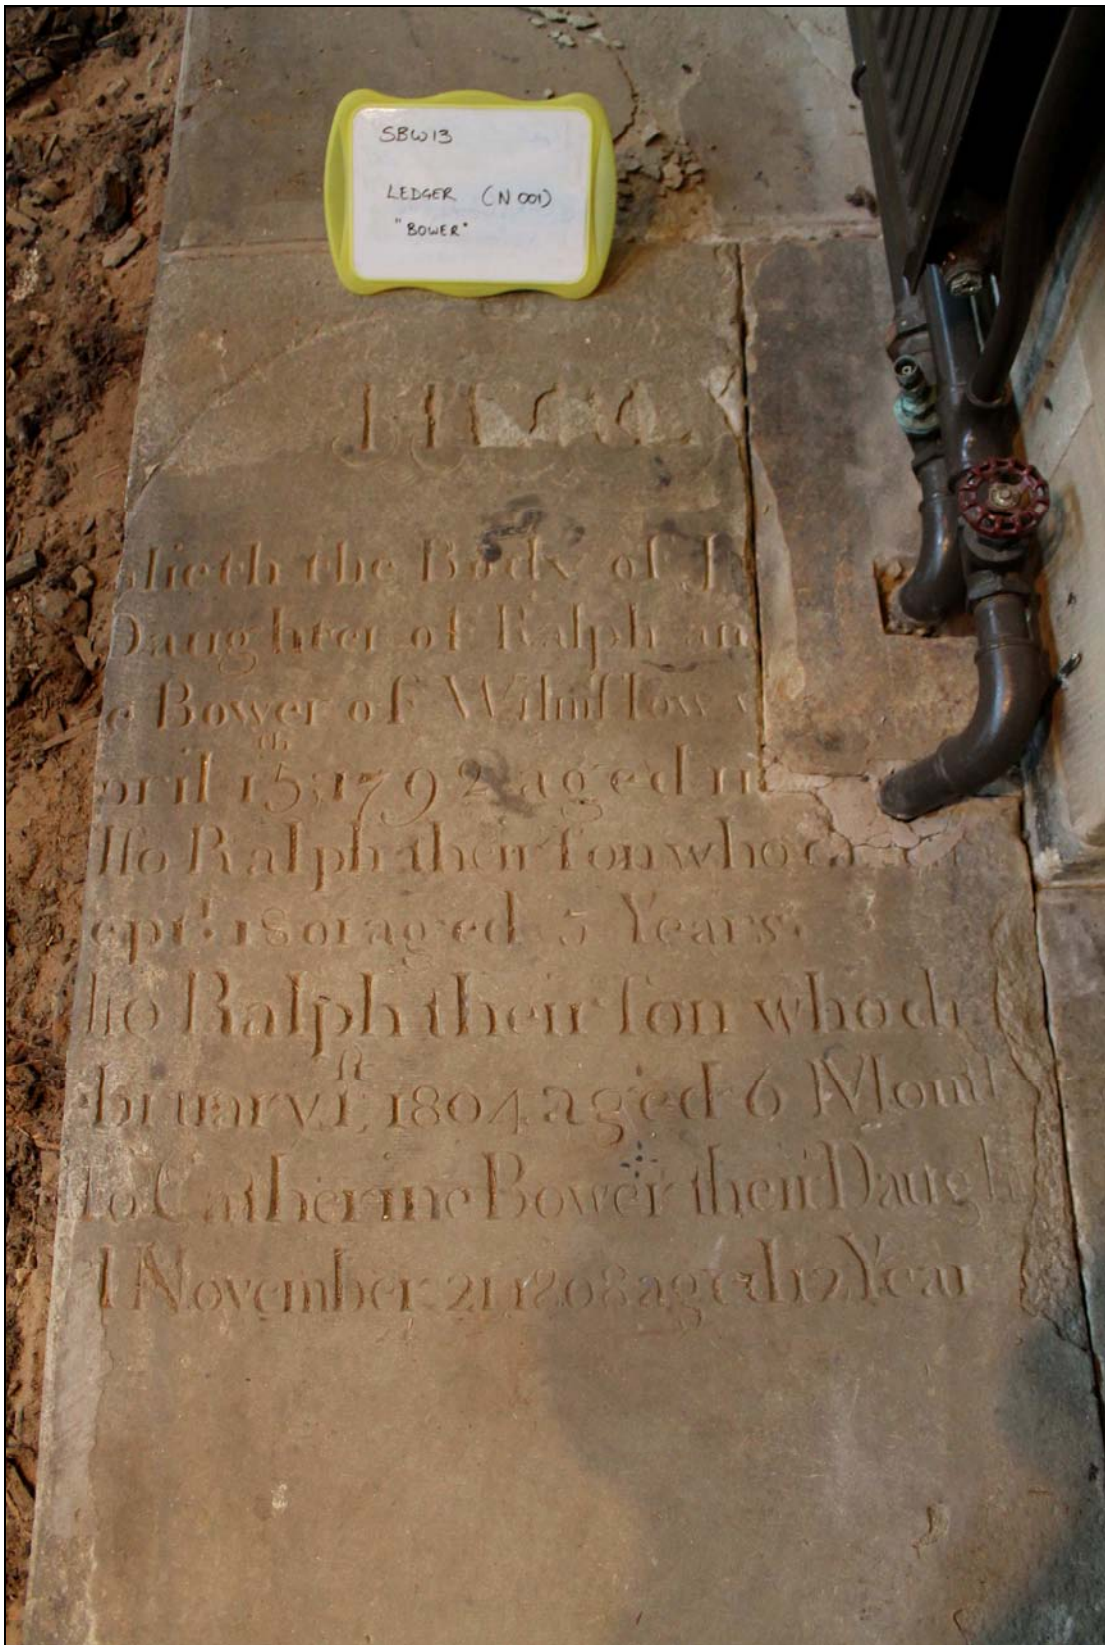 SBW13
LEDGER (N 001)
"BOWER"
lieth the Body of J
Daughter of Ralph an
e Bower of Wilmſlow
pril 15th; 1792 aged 11
lſo Ralph their ſon who
ept.r 1801 aged 5 Years
lſo Ralph their ſon who di
bruary 1ſt, 1804 aged 6 Month
ſo Catherine Bower their Daugh
d November 21 1808 aged 12 Year